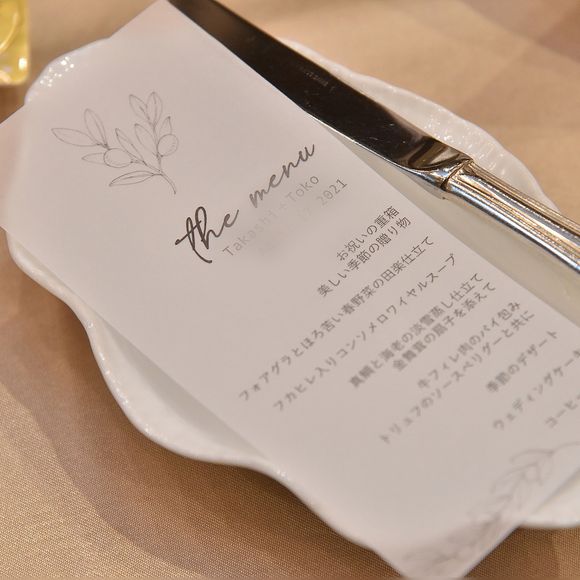 the menu
Takashi・Toko
17 2021
お祝いの重箱
美しい季節の贈り物
フォアグラとほろ苦い春野菜の田楽仕立て
フカヒレ入りコンソメロワイヤルスープ
真鯛と海老の淡雪蒸し仕立て
金舞茸の扇子を添えて
牛フィレ肉のパイ包み
トリュフのソースペリグーと共に
季節のデザート
ウェディングケーキ
コーヒー